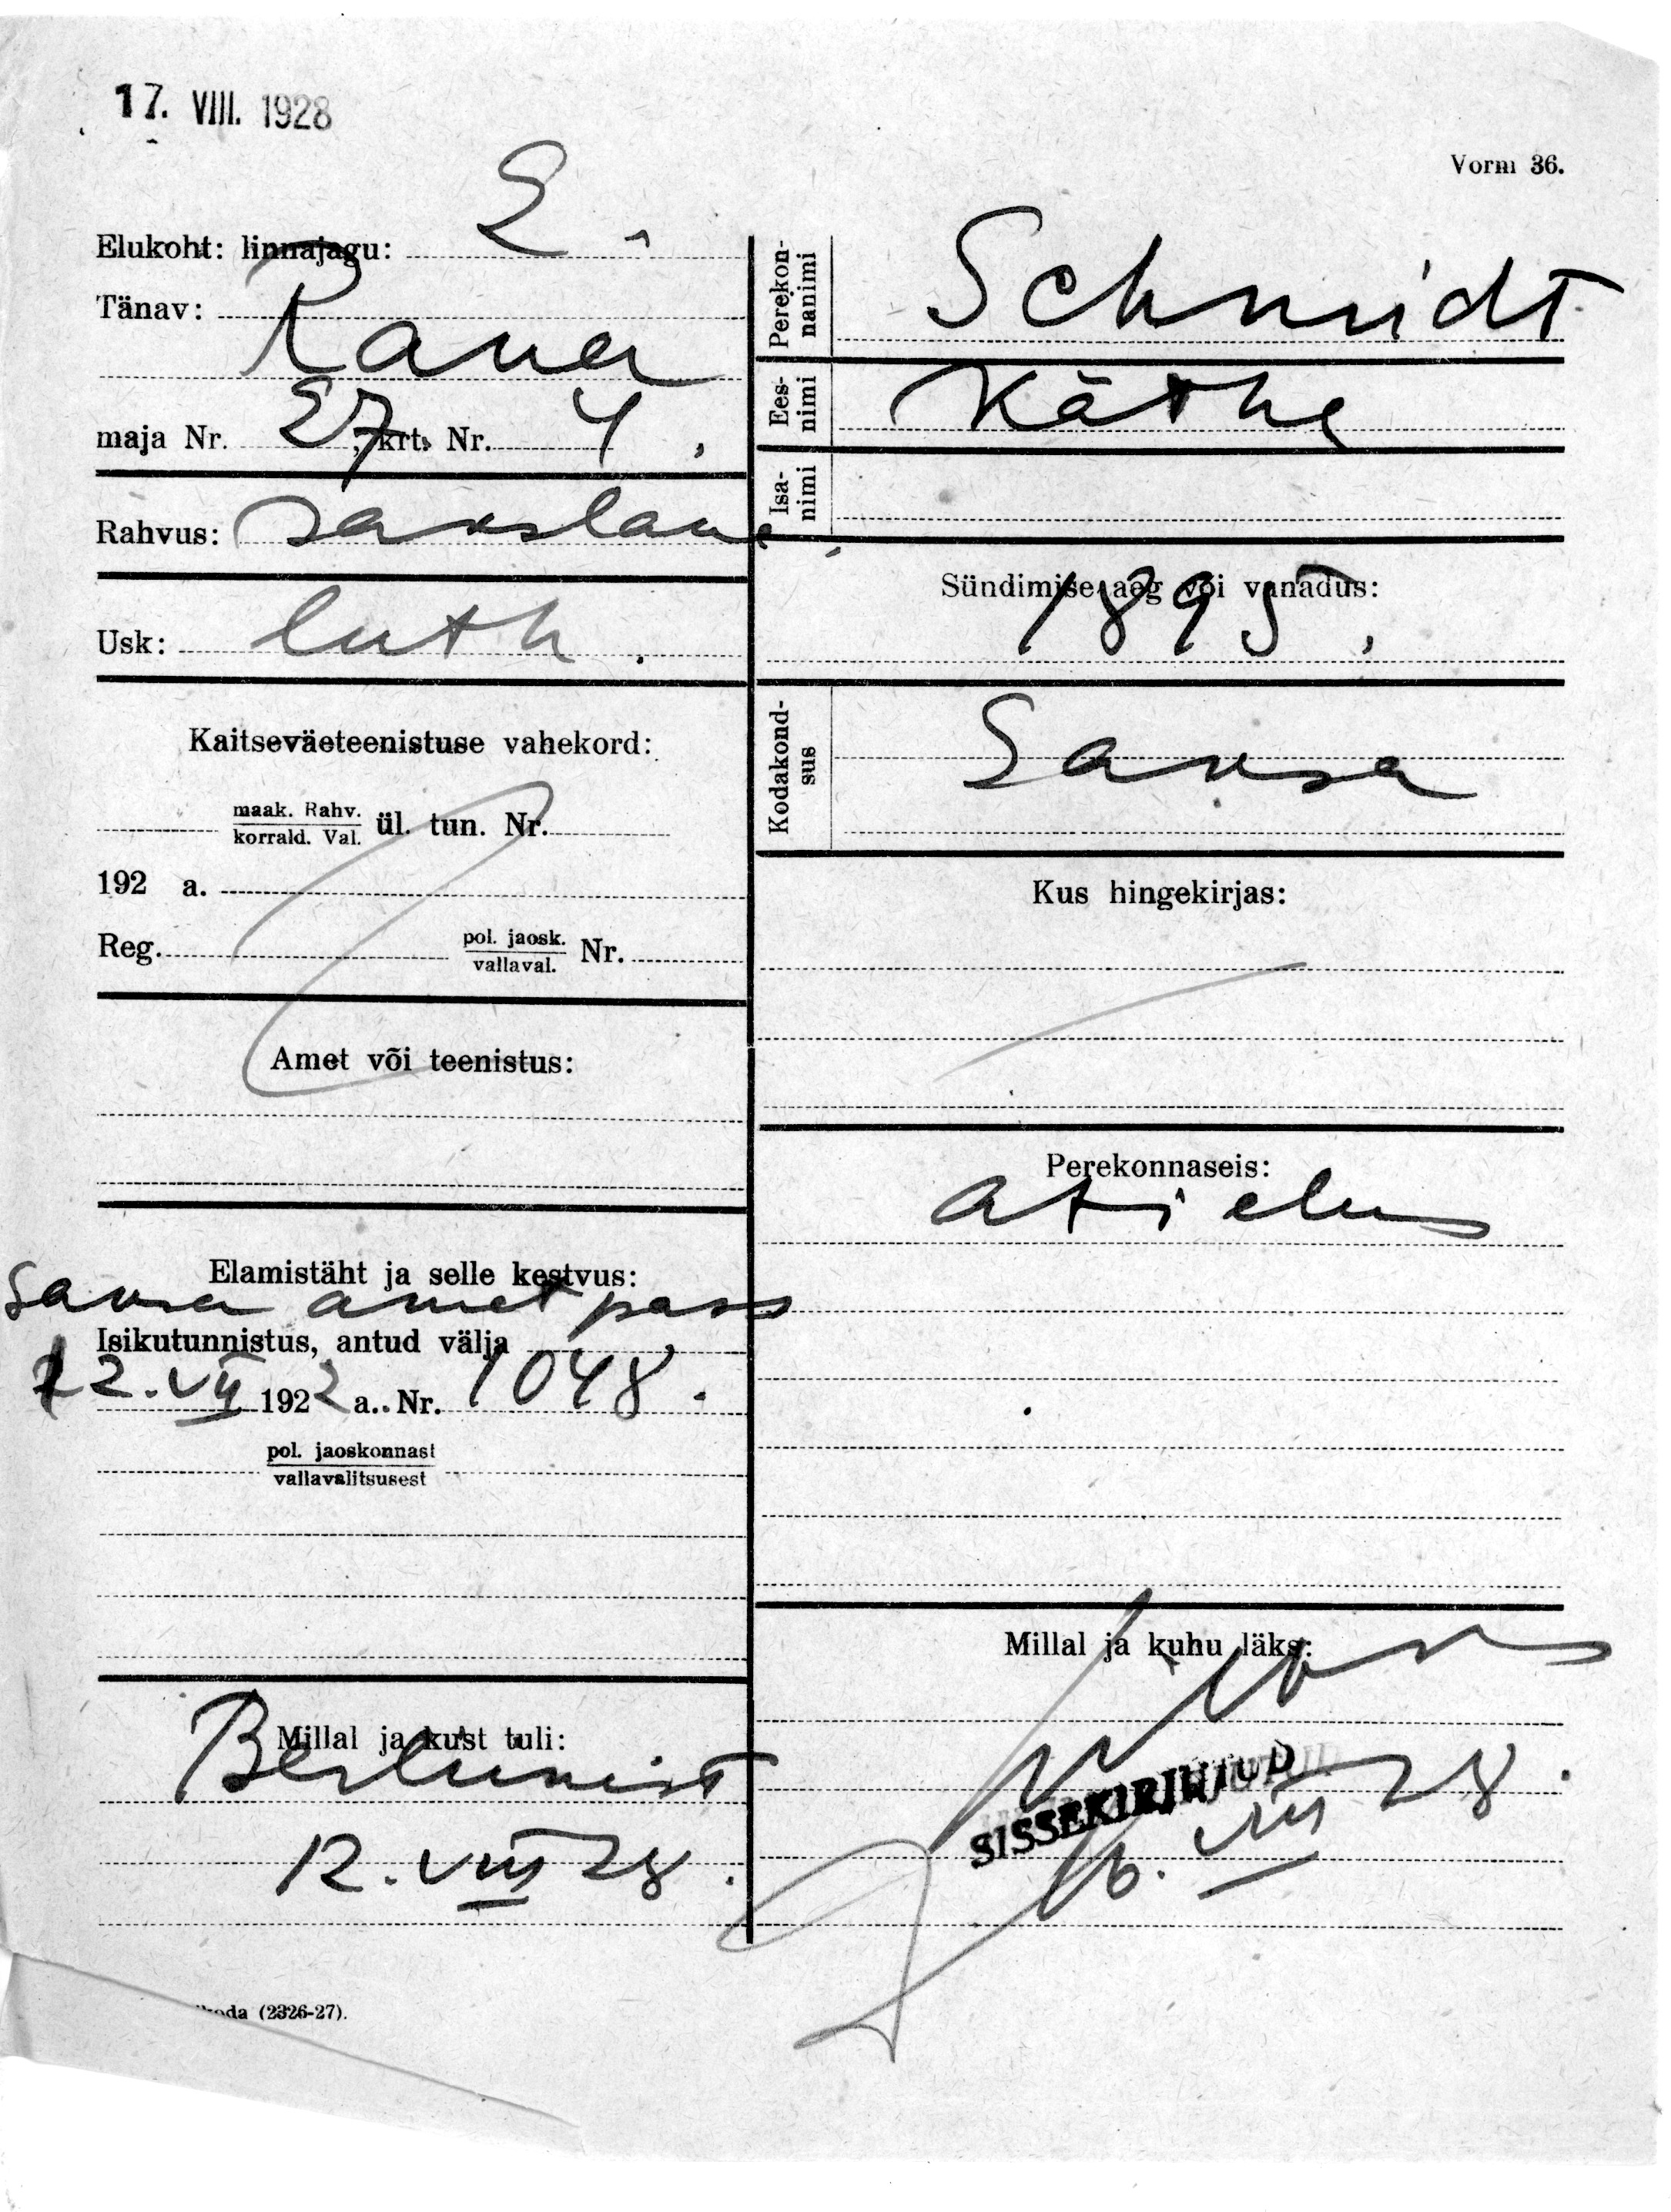 17. VIII. 1928
Vorm 36.
Elukoht: linnajagu: 2.
Tänav:
maja Nr. 27, krt. Nr. 4.
Rahvus: sakslane
Usk: luth.
Kaitseväeteenistuse vahekord:
maak. Rahv.
korrald. Val. ül. tun. Nr.
192 a.
Reg. pol. jaosk.
vallaval. Nr.
Amet või teenistus:
Elamistäht ja selle kestvus:
Saksa amet pass
Isikutunnistus, antud välja
12. VII 1922 a. Nr. 1048.
pol. jaoskonnast
vallavalitsusest
Millal ja kust tuli:
Berliinist
12. VIII 28.
(2326-27).
Perekonnanimi Schmidt
Eesnimi Käthe
Isanimi
Sündimise aeg või vanadus:
1895.
Kodakondsus Saksa
Kus hingekirjas:
Perekonnaseis:
abielus
Millal ja kuhu läks:
SISSEKIRJUTUD
16. VIII 28.